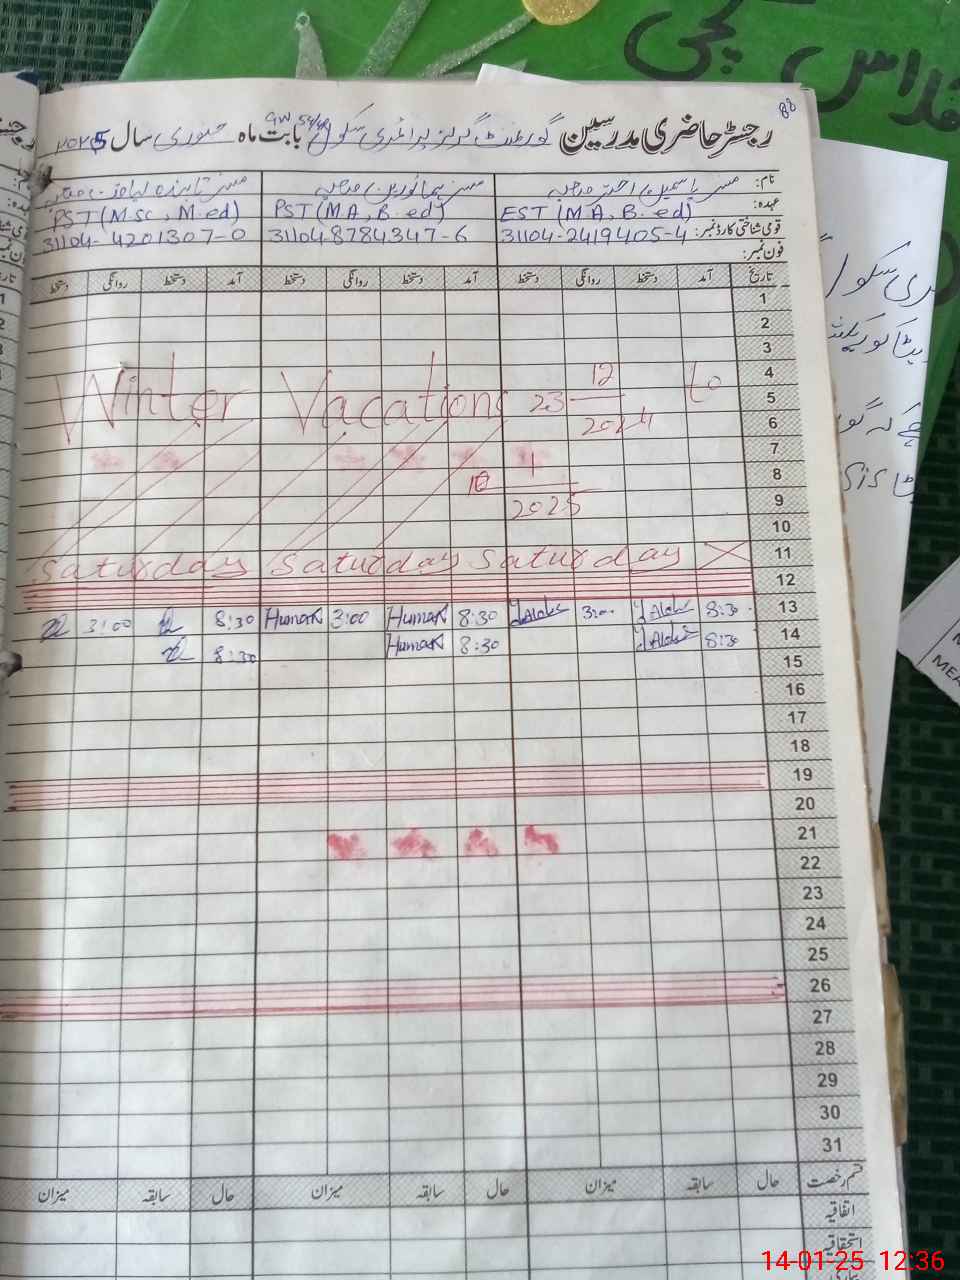 88
رجسٹر حاضری مدرسین گورنمنٹ گرلز پرائمری سکول 54/GW بابت ماہ جنوری سال ۲۰۲5
نام: مسز یاسمین اختر صاحبہ مسز ہما نورین صاحبہ
عہدہ: EST (M A , B. ed) PST (M A , B. ed) PST (M.Sc , M.ed)
قومی شناختی کارڈ نمبر: 31104-2419405-4 31104-8784347-6 31104-4201307-0
فون نمبر:
تاریخ آمد دستخط روانگی دستخط آمد دستخط روانگی دستخط آمد دستخط روانگی دستخط
1
2
3
4
5
6
Winter Vacations 23 12 2024 to
7
8
10 1 2025
9
10
11
Saturday Saturday Saturday
12
13 8:30 3:00 8:30 Human 3:00 Human 8:30 3:00
14 8:30 8:30 Human 8:30
15
16
17
18
19
20
21
22
23
24
25
26
27
28
29
30
31
قسم رخصت حال سابقہ میزان حال سابقہ میزان حال سابقہ میزان
اتفاقیہ
استحقاقیہ
کلاس کچی
14-01-25 12:36